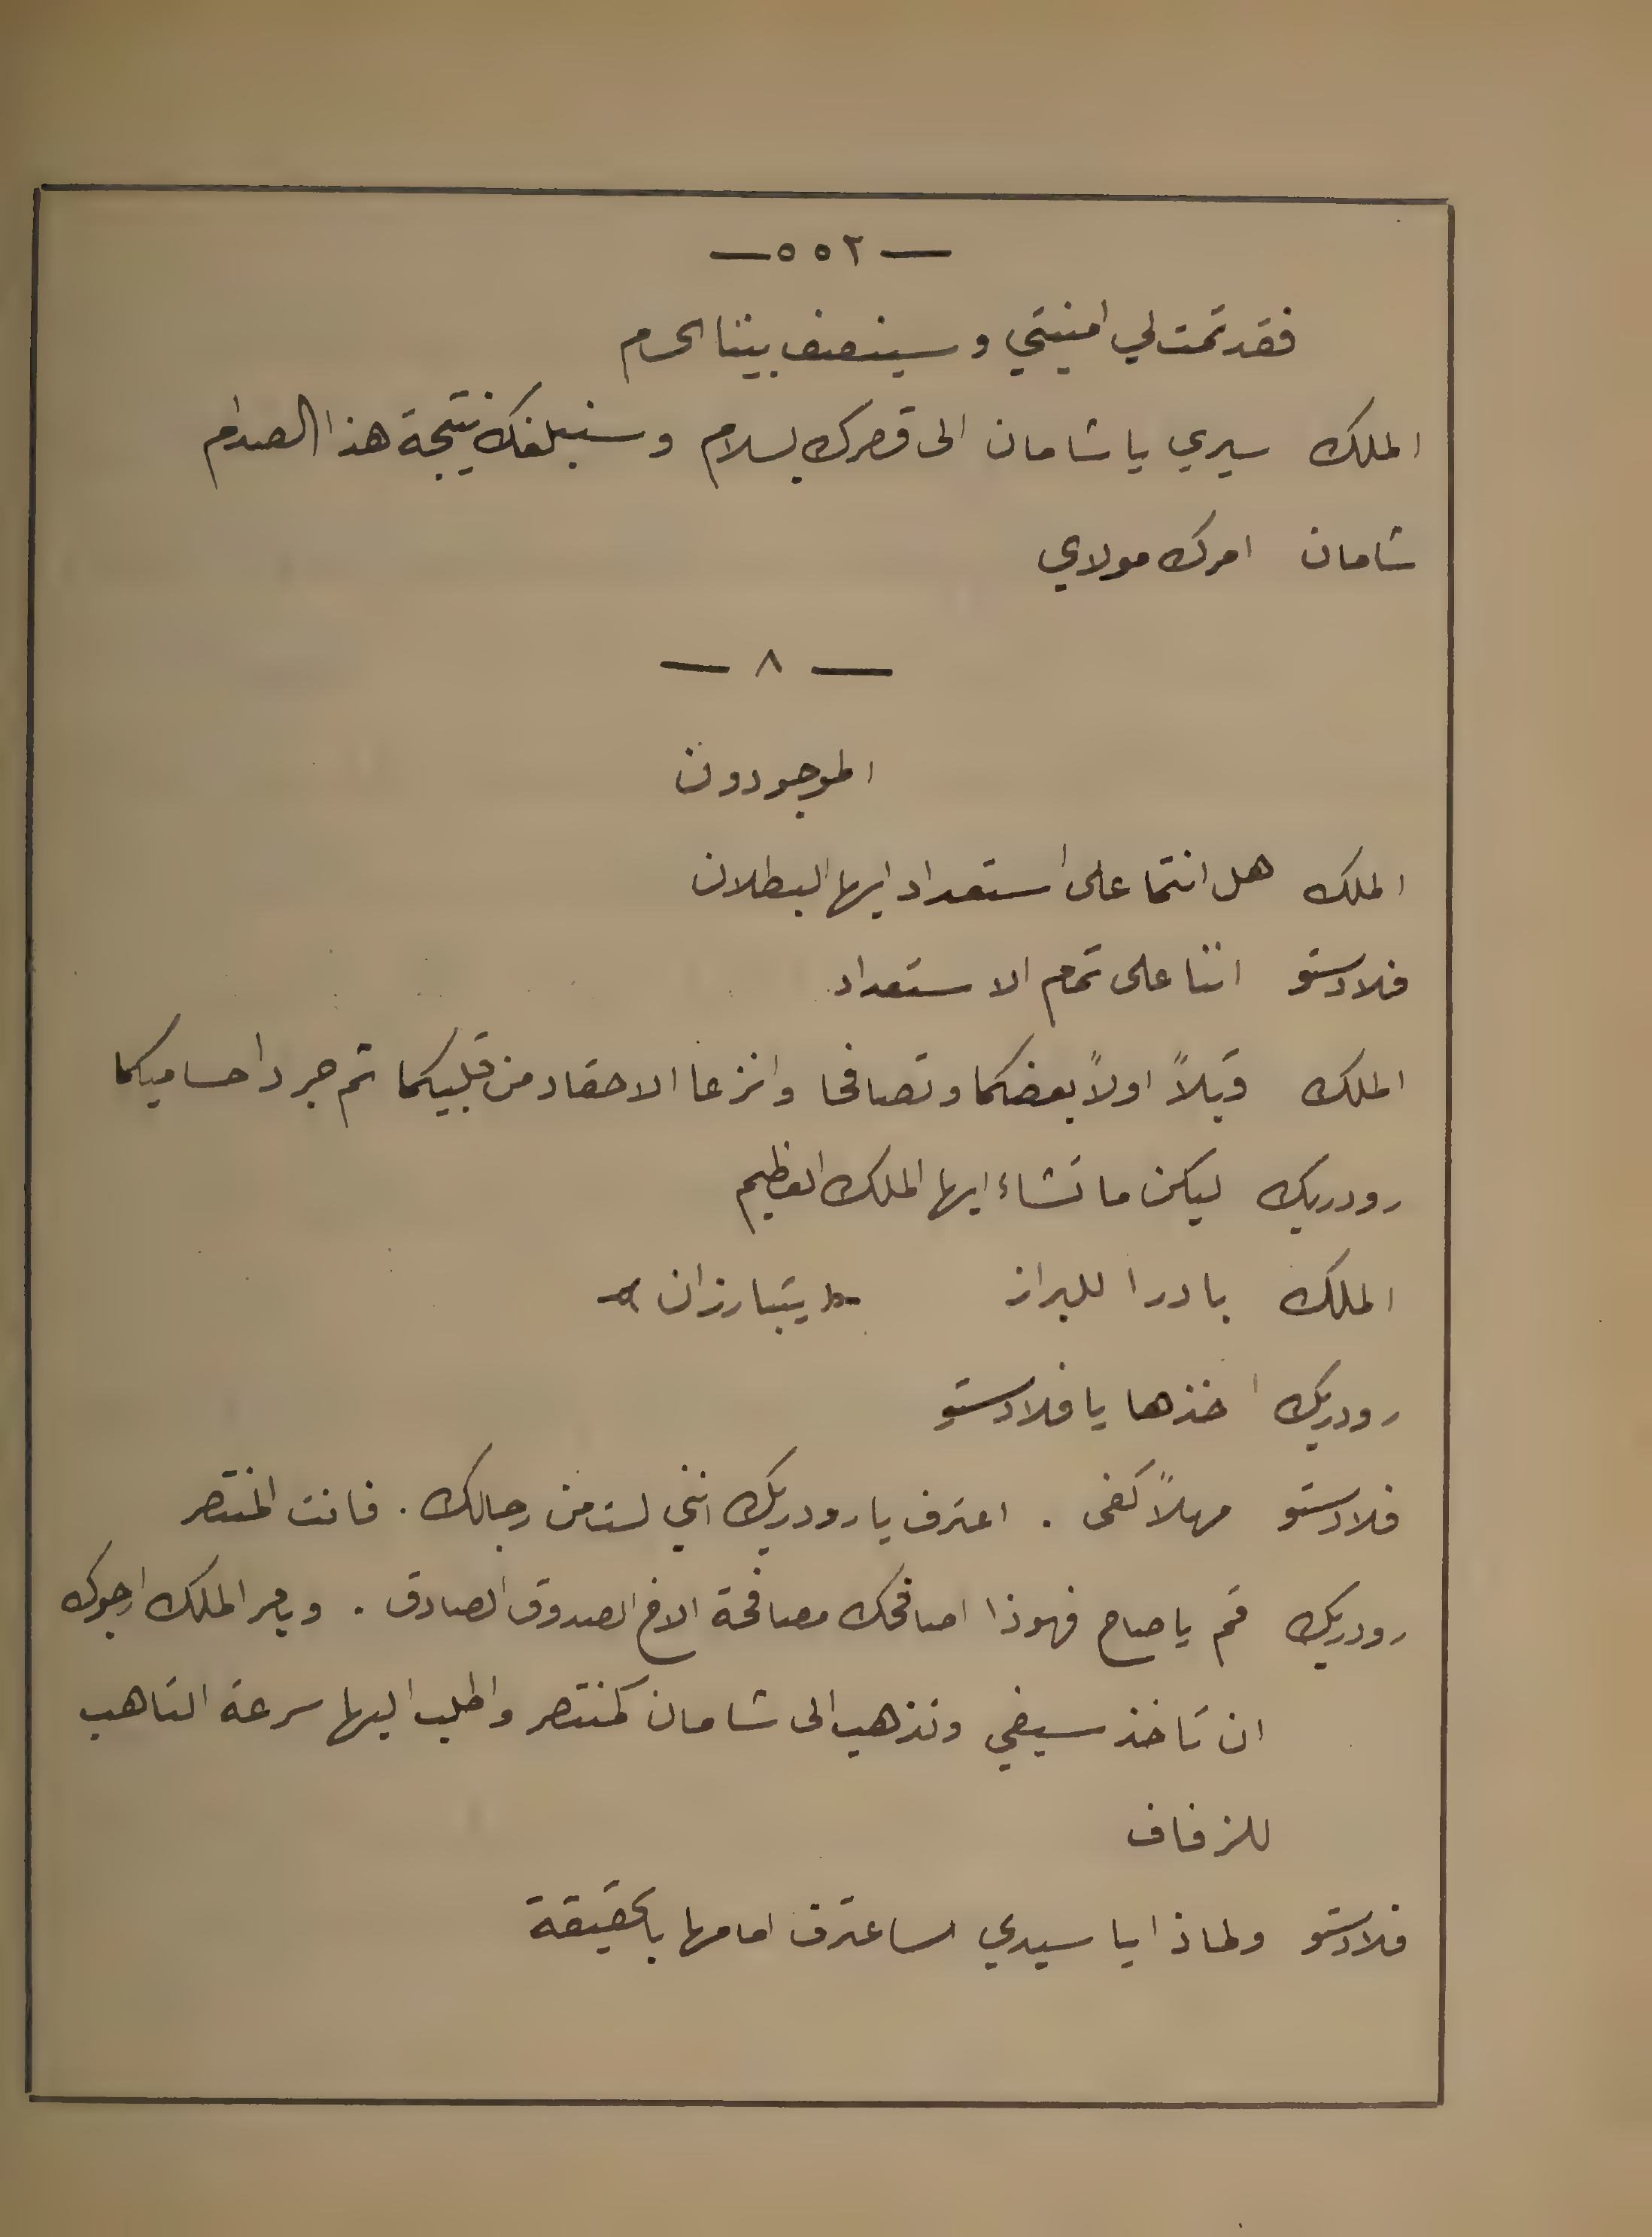 — ٥٥٢ —
فقد تمت لي امنيتي وسينصف بيننا الحسام
الملك سيري يا شامان الى قصرك بسلام وسنبلغك نتيجة هذا الصدام
شامان امرك مولاي
— ٨ —
الموجودون
الملك هل انتما على استعداد ايها البطلان
فلادستو اننا على تمام الاستعداد
الملك قبلاً اولاً بعضكما وتصافحا وانزعا الاحقاد من قلبيكما ثم جردا حساميكما
رودريك ليكن ما تشاء ايها الملك العظيم
الملك بادرا للبراز «يتبارزان»
رودريك خذها يا فلادستو
فلادستو مهلاً كفى . اعترف يا رودريك انني لست من رجالك . فانت المنتصر
رودريك قم يا صاح فهوذا اصافحك مصافحة الاخ الصدوق الصادق . وبامر الملك ارجوك
ان تاخذ سيفي وتذهب الى شامان كمنتصر واطلب اليها سرعة التاهب
للزفاف
فلادستو ولماذا يا سيدي ساعترف امامها بالحقيقة